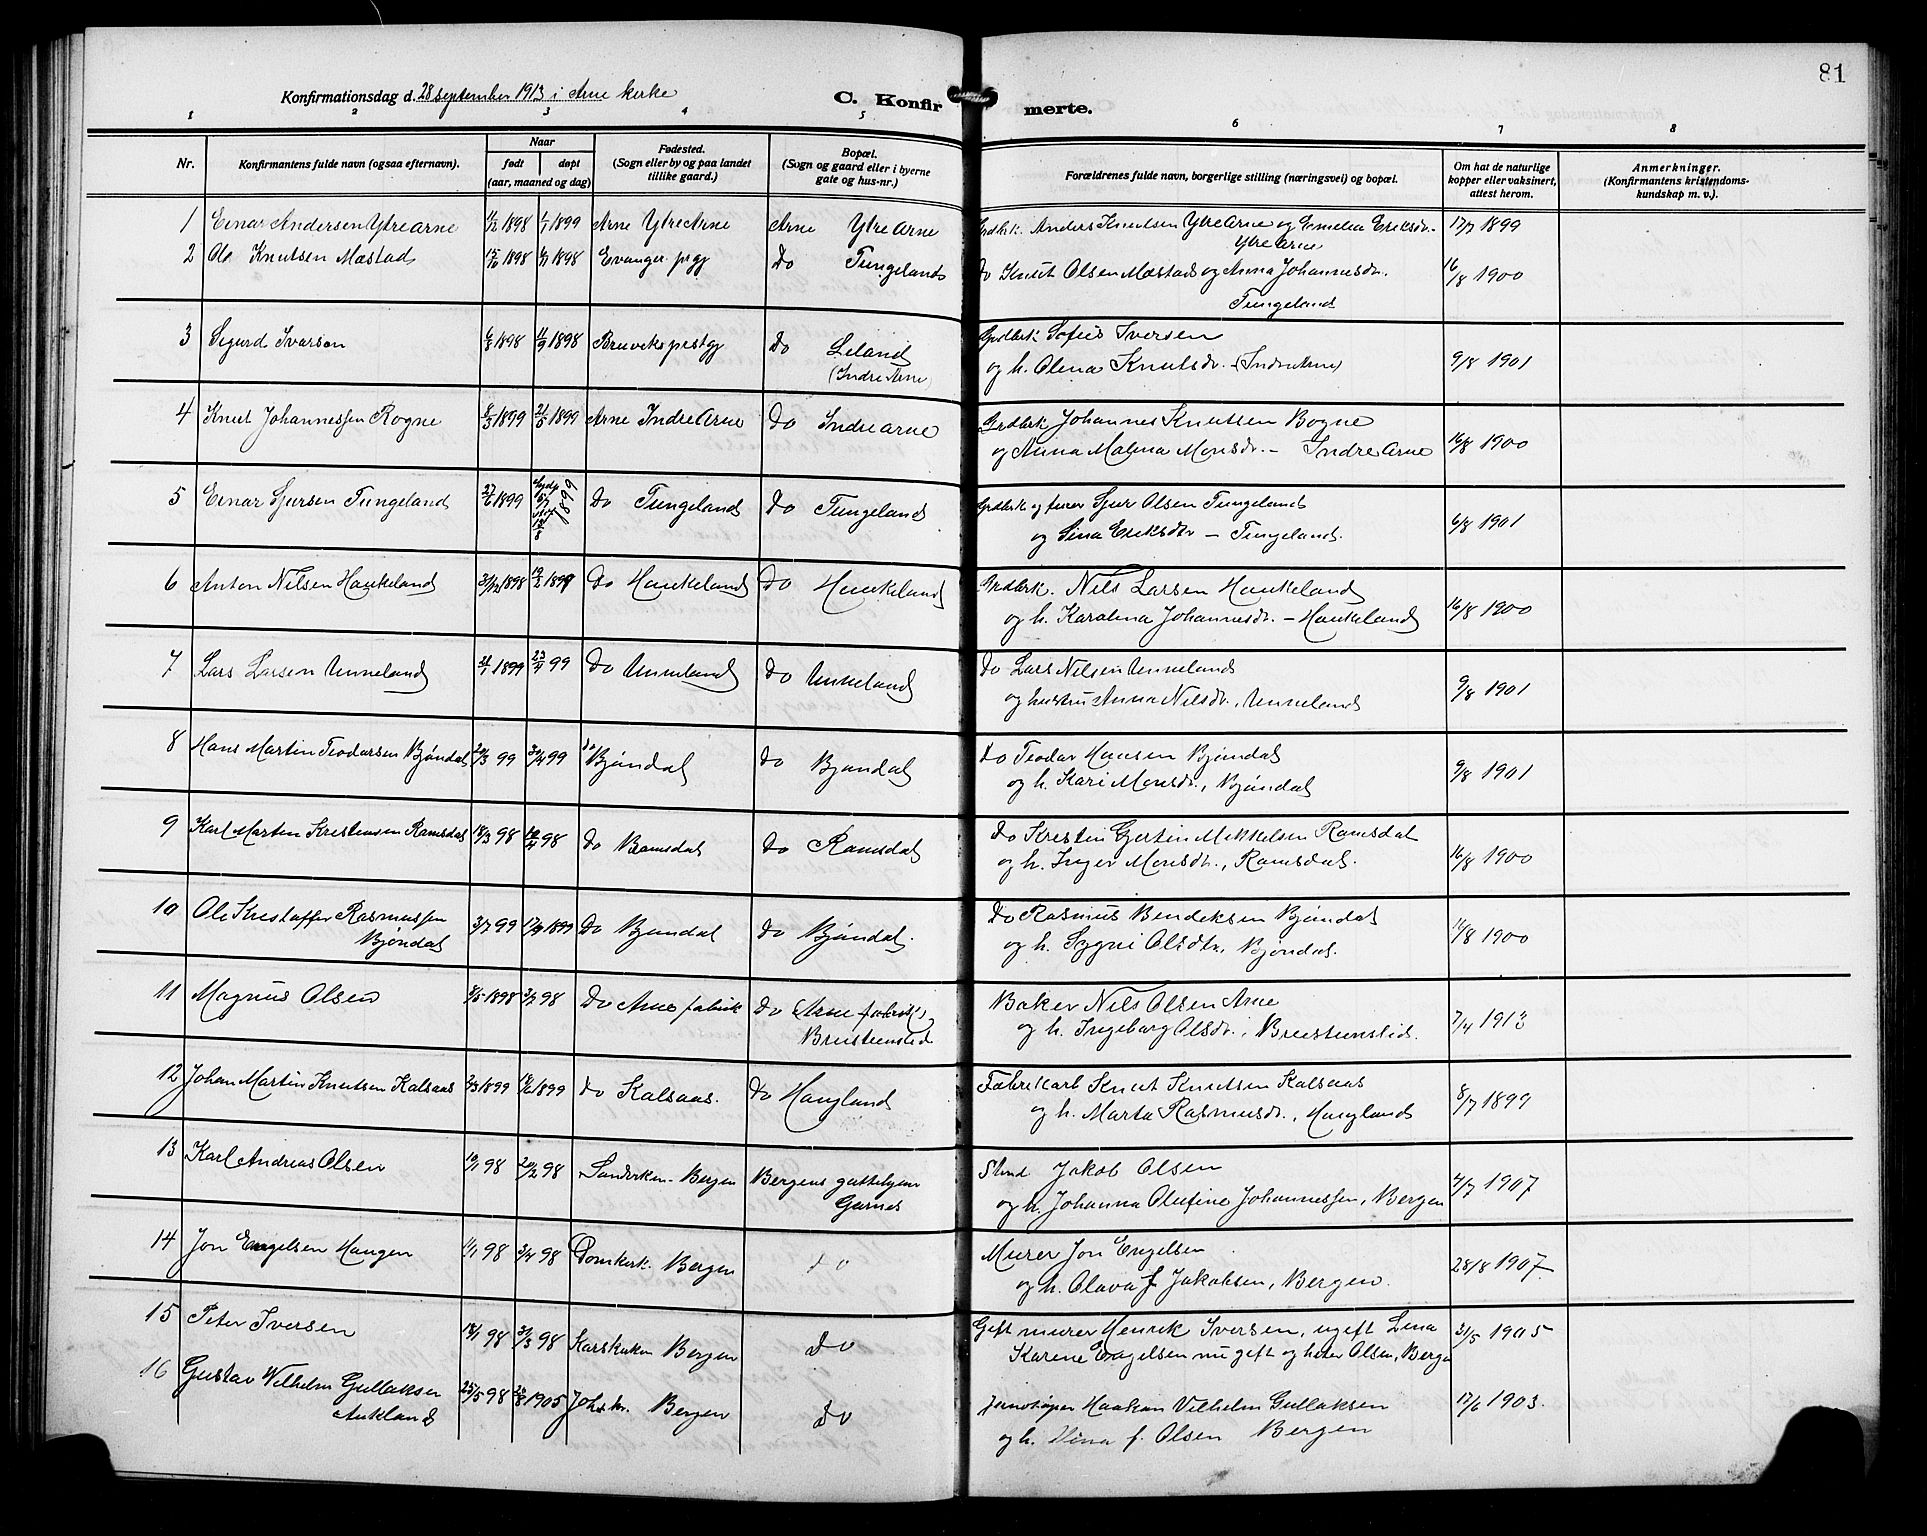 81
Konfirmationsdag d. 28 september 1913 i Arne kirke
C. Konfirmerte.
1 2 3 4 5 6 7 8
Nr.
Konfirmantens fulde navn (ogsaa efternavn).
Naar
født
døpt
(aar, maaned og dag)
Fødested.
(Sogn eller by og paa landet
tillike gaard.)
Bopæl.
(Sogn og gaard eller i byerne
gate og hus-nr.)
Forældrenes fulde navn, borgerlige stilling (næringsvei) og bopæl.
Om hat de naturlige
kopper eller vaksinert,
attest herom.
Anmerkninger.
(Konfirmantens kristendoms-
kundskap m. v.).
1 Einar Andersen Ytre Arne 1898 1/1 1899 Arne Ytre Arne Arne Ytre Arne Grdbrk. Anders Knutsen Ytre Arne og Emelia Eriksdr. 17/7 1899
Ytre Arne
2 Ole Knutsen Mæstad 1898 1898 Evanger prgj Do Tungeland Do Knut Olsen Mæstad og Anna Johannesdr. 16/8 1900
Tungeland
3 Sigurd Ivarsen 6/8 1898 11/9 1898 Bruvik prstgj Do Leland Grdbrk Sofus Iversen
(Indre Arne) og h. Olena Knutsdr. - (Indre Arne) 9/8 1901
4 Knut Johannessen Rogne 8/3 1899 21/5 1899 Arne Indre Arne Do Indre Arne Grdbrk Johannes Knutsen Rogne
og Anna Malina Monsdr. - Indre Arne 16/8 1900
5 Einar Sjursen Tungeland 1899 1899 Do Tungeland Do Tungeland Grdbrk og Sjur Olsen Tungeland
og Sina Eriksdtr - Tungeland. 6/8 1901
6 Anton Nilsen Haukeland 31/12 1898 19/2 1899 Do Haukeland Do Haukeland Grdbrk. Nils Larsen Haukeland
og h. Karolina Johannesdr. - Haukeland 16/8 1900
7 Lars Larsen Unneland 1899 23/4 99 Do Unneland Do Unneland Do Lars Nilsen Unneland
og hustru Anna Nilsdr., Unneland 9/8 1901
8 Hans Martin Teodorsen Bjøndal 20/3 99 30/4 99 do Bjøndal Do Bjøndal Do Teodor Hansen Bjøndal
og h. Kari Monsdr., Bjøndal 9/8 1901
9 Karl Martin Kristensen Ramsdal 18/3 98 98 Do Ramsdal Do Ramsdal Do Kristen Gjertin Mikkelsen Ramsdal
og h. Inger Monsdr., Ramsdal. 16/8 1900
10 Ole Kristoffer Rasmussen 3/7 99 17/9 1899 Do Bjøndal Do Bjøndal. Do Rasmus Bendiksen Bjøndal
Bjøndal og h. Sygni Olsdtr, Bjøndal. 1900
11 Magnus Olsen 1898 3/7 98 Do Arne fabrik Do (Arne fabrik), Baker Nils Olsen Arne
og h. Ingeborg Olsdr., 7/4 1913
12 Johan Martin Knutsen Kalsaas 1899 1899 Do Kalsaas. Do Haugland Fabrikarb Knut Knutsen Kalsaas
og h. Marta Rasmusdr., Haugland 8/7 1899
13 Karl Andreas Olsen 19/1 98 20/2 98 Sandviken - Bergen Bergens guttehjem Jakob Olsen
Garnes og h. Johanna Olufine Johannessen, Bergen 4/7 1907
14 Jon Engelsen Haugen 11/1 98 3/4 98 Domkirk. Bergen do Murer Jon Engelsen
og h. Olava f Jakobsen, Bergen. 28/8 1907
15 Peter Iversen 18/1 98 98 Korskirken Bergen Do Gift murer Henrik Iversen, ugift Lina 31/5 1905
Karine Engelsen nu gift og heter Olsen, Bergen
16 Gustav Wilhelm Gullaksen 25/5 98 1905 Joh.kr. Bergen Do Haakon Vilhelm Gullaksen 17/6 1903.
Aukland og h. f. Olsen Bergen